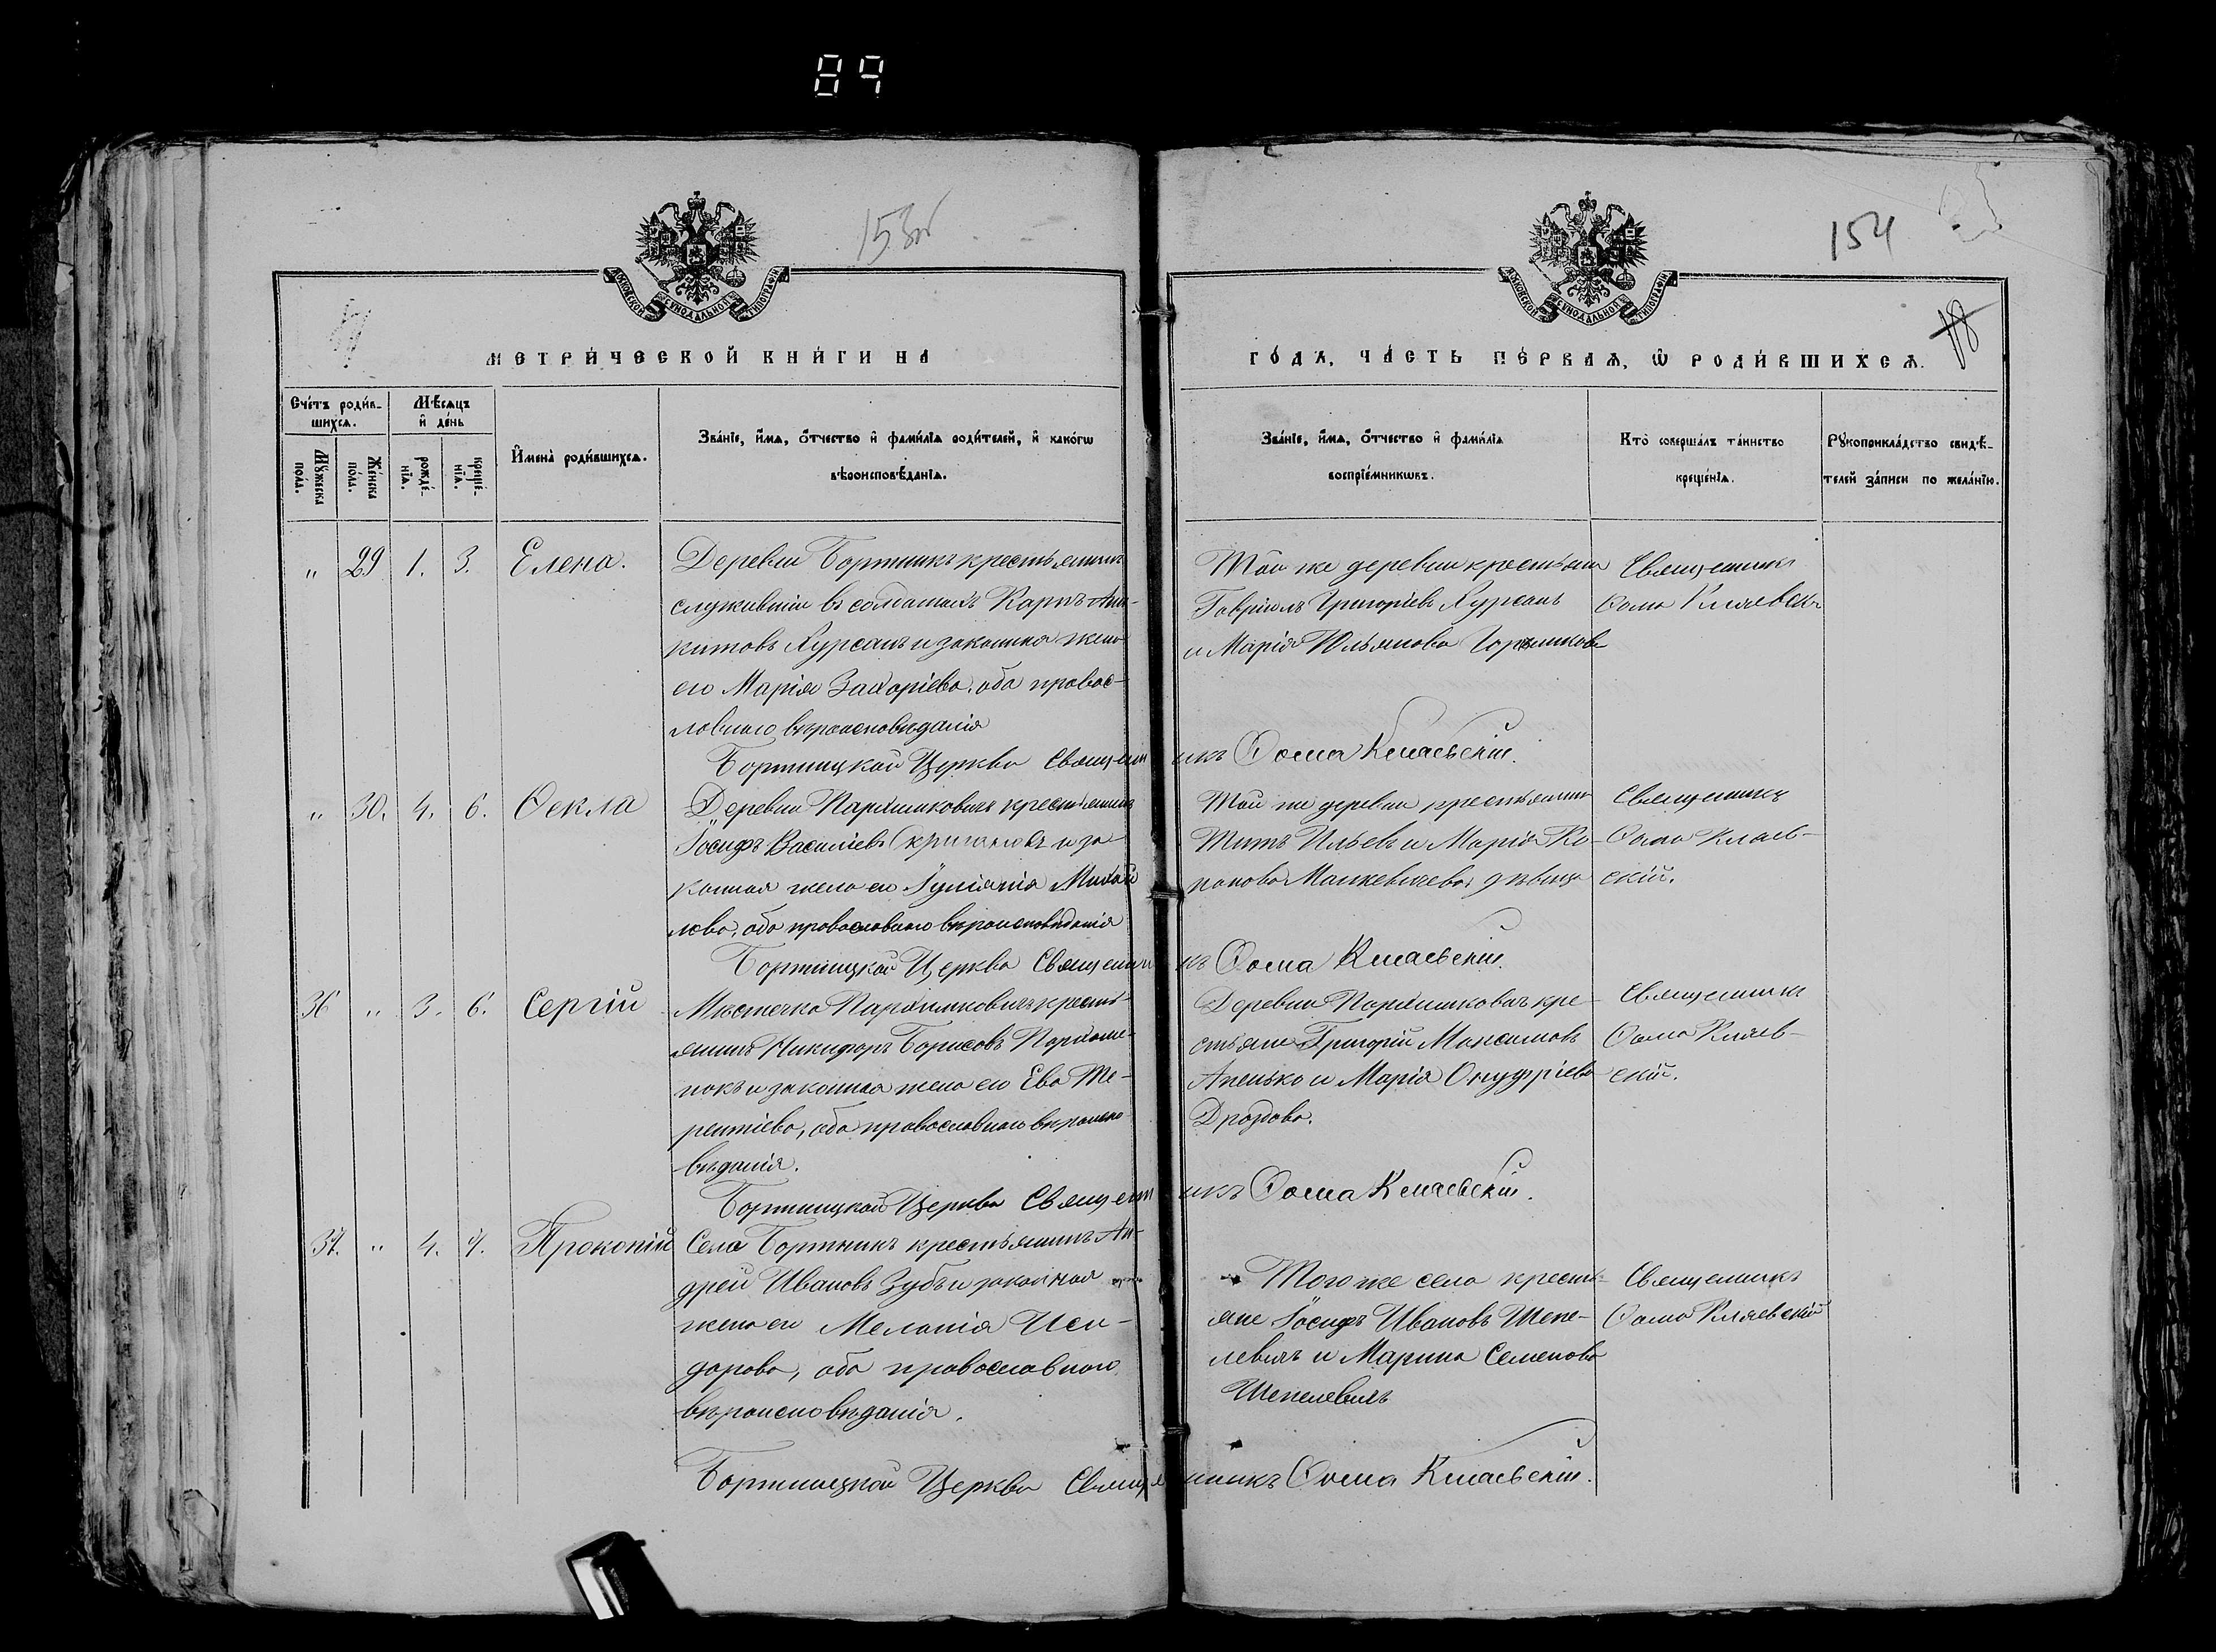 89
153об
154
18
МОСКОВСКОЙ СѴНОДАЛЬНОЙ ТИПОГРАФІИ
МОСКОВСКОЙ СѴНОДАЛЬНОЙ ТИПОГРАФІИ
МЕТРИ́ЧЕСКОЙ КНИ́ГИ НА
ГО́ДА, ЧА́СТЬ ПЕ́РВАЯ, Ѡ РОДИ́ВШИХСЯ.
Сче́тъ роди́в-
шихся.
Мѣ́сяцъ
и҆ де́нь
Мꙋ́жеска
по́ла.
Же́нска
по́ла.
рожде́-
нїя.
креще́-
нїя.
И҆мена̀ роди́вшихся.
Зва́нїе, и҆́мя, ѻ҆́тчество и҆ фами́лїя роди́телей, и҆ како́гѡ
вѣроисповѣ́данїя.
Зва́нїе, и҆́мя, ѻ҆́тчество и҆ фами́лїя
воспрїе́мникѡвъ.
Кто̀ соверша́лъ та́инство
креще́нїя.
Рꙋкоприкла́дство свидѣ́-
телей за́писи по жела́нїю.
" 29 1. 3. Елена.
Деревни Бортникъ крестьянинъ
служившій въ солдатахъ Карпъ Ани-
китовъ Хурсанъ и законная жена
его Марія Захаріева, оба правос-
лавнаго вѣроисповѣданія
Той же деревни крестьяни
Гавріилъ Григоріевъ Хурсанъ
и Марія Юльянова
Священникъ
Ѳома Кмаевск
Бортницкой Церкви Священникъ Ѳома Кмаевскій.
" 30. 4. 6. Ѳекла
Деревни Пархимковичъ крестьянинъ
Іосифъ Василіевъ и за-
конная жена его Іуліанія Михай
лова, оба православнаго вѣроисповѣданія
Той же деревни крестьянинъ
Титъ Ильевъ и Марія Ко-
нонова Манкевичева, дѣвица
Священникъ
Ѳома Кмаев-
скій.
Бортницкой Церкви Священникъ Ѳома Кмаевскій.
36 " 3. 6. Сергій
Мѣстечка Пархимковичъ кресть-
янинъ Никифоръ Борисовъ Пархоме-
нокъ и законная жена его Ева Те-
рентіева, оба православнаго вѣроиспо
вѣданія.
Деревни Пархимковичъ кре-
стьяне Григорій Максимовъ
Апенько и Марія Онуфріева
Дроздова.
Священникъ
Ѳома Кмаев-
скій.
Бортницкой Церкви Священникъ Ѳома Кмаевскій.
37. " 4. 7. Прокопій
Села Бортникъ крестьянинъ Ан-
дрей Ивановъ Зубъ и законная
жена его Меланія Иси-
дорова, оба православнаго
вѣроисповѣданія.
Того же села кресть-
яне Іосифъ Ивановъ Шепе-
левичъ и Марина Семенова
Шепелевичъ
Священникъ
Ѳома Кмаевскій
Бортницкой Церкви Священникъ Ѳома Кмаевскій.